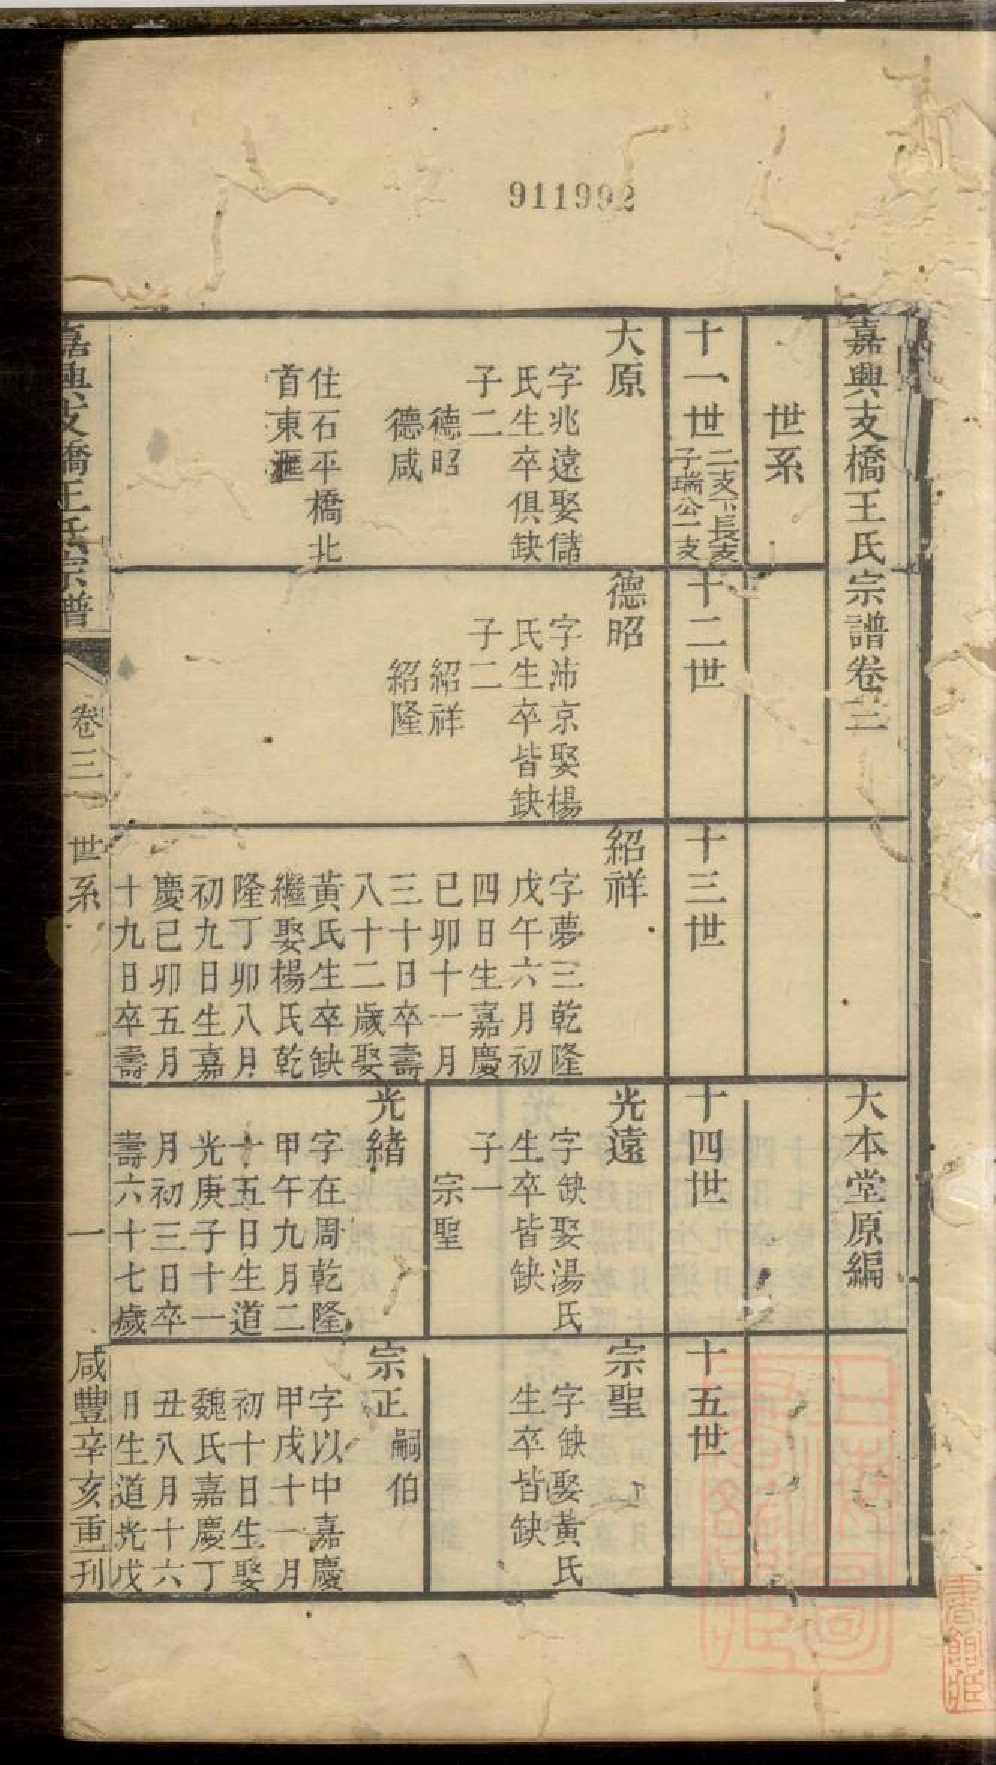 911992
嘉興支橋王氏宗譜卷三
大本堂原編
世系
十一世
二支下長支
子瑞公一支
大原
字兆遠娶儲
氏生卒俱缺
子二
德昭
德咸
住石平橋北
首東匯
十二世
德昭
字沛京娶楊
氏生卒皆缺
子二
紹祥
紹隆
十三世
紹祥
字夢三乾隆
戊午六月初
四日生嘉慶
已卯十一月
三十日卒壽
八十二歲娶
黃氏生卒缺
繼娶楊氏乾
隆丁卯八月
初九日生嘉
慶已卯五月
十九日卒壽
十四世
光遠
字缺娶湯氏
生卒皆缺
子一
宗聖
光緒
字在周乾隆
甲午九月二
十五日生道
光庚子十一
月初三日卒
壽六十七歲
十五世
宗聖
字缺娶黃氏
生卒皆缺
宗正
嗣伯
字以中嘉慶
甲戌十一月
初十日生娶
魏氏嘉慶丁
丑八月十六
日生道光戊
嘉興支橋王氏宗譜
卷三 世系
一
咸豐辛亥重刊